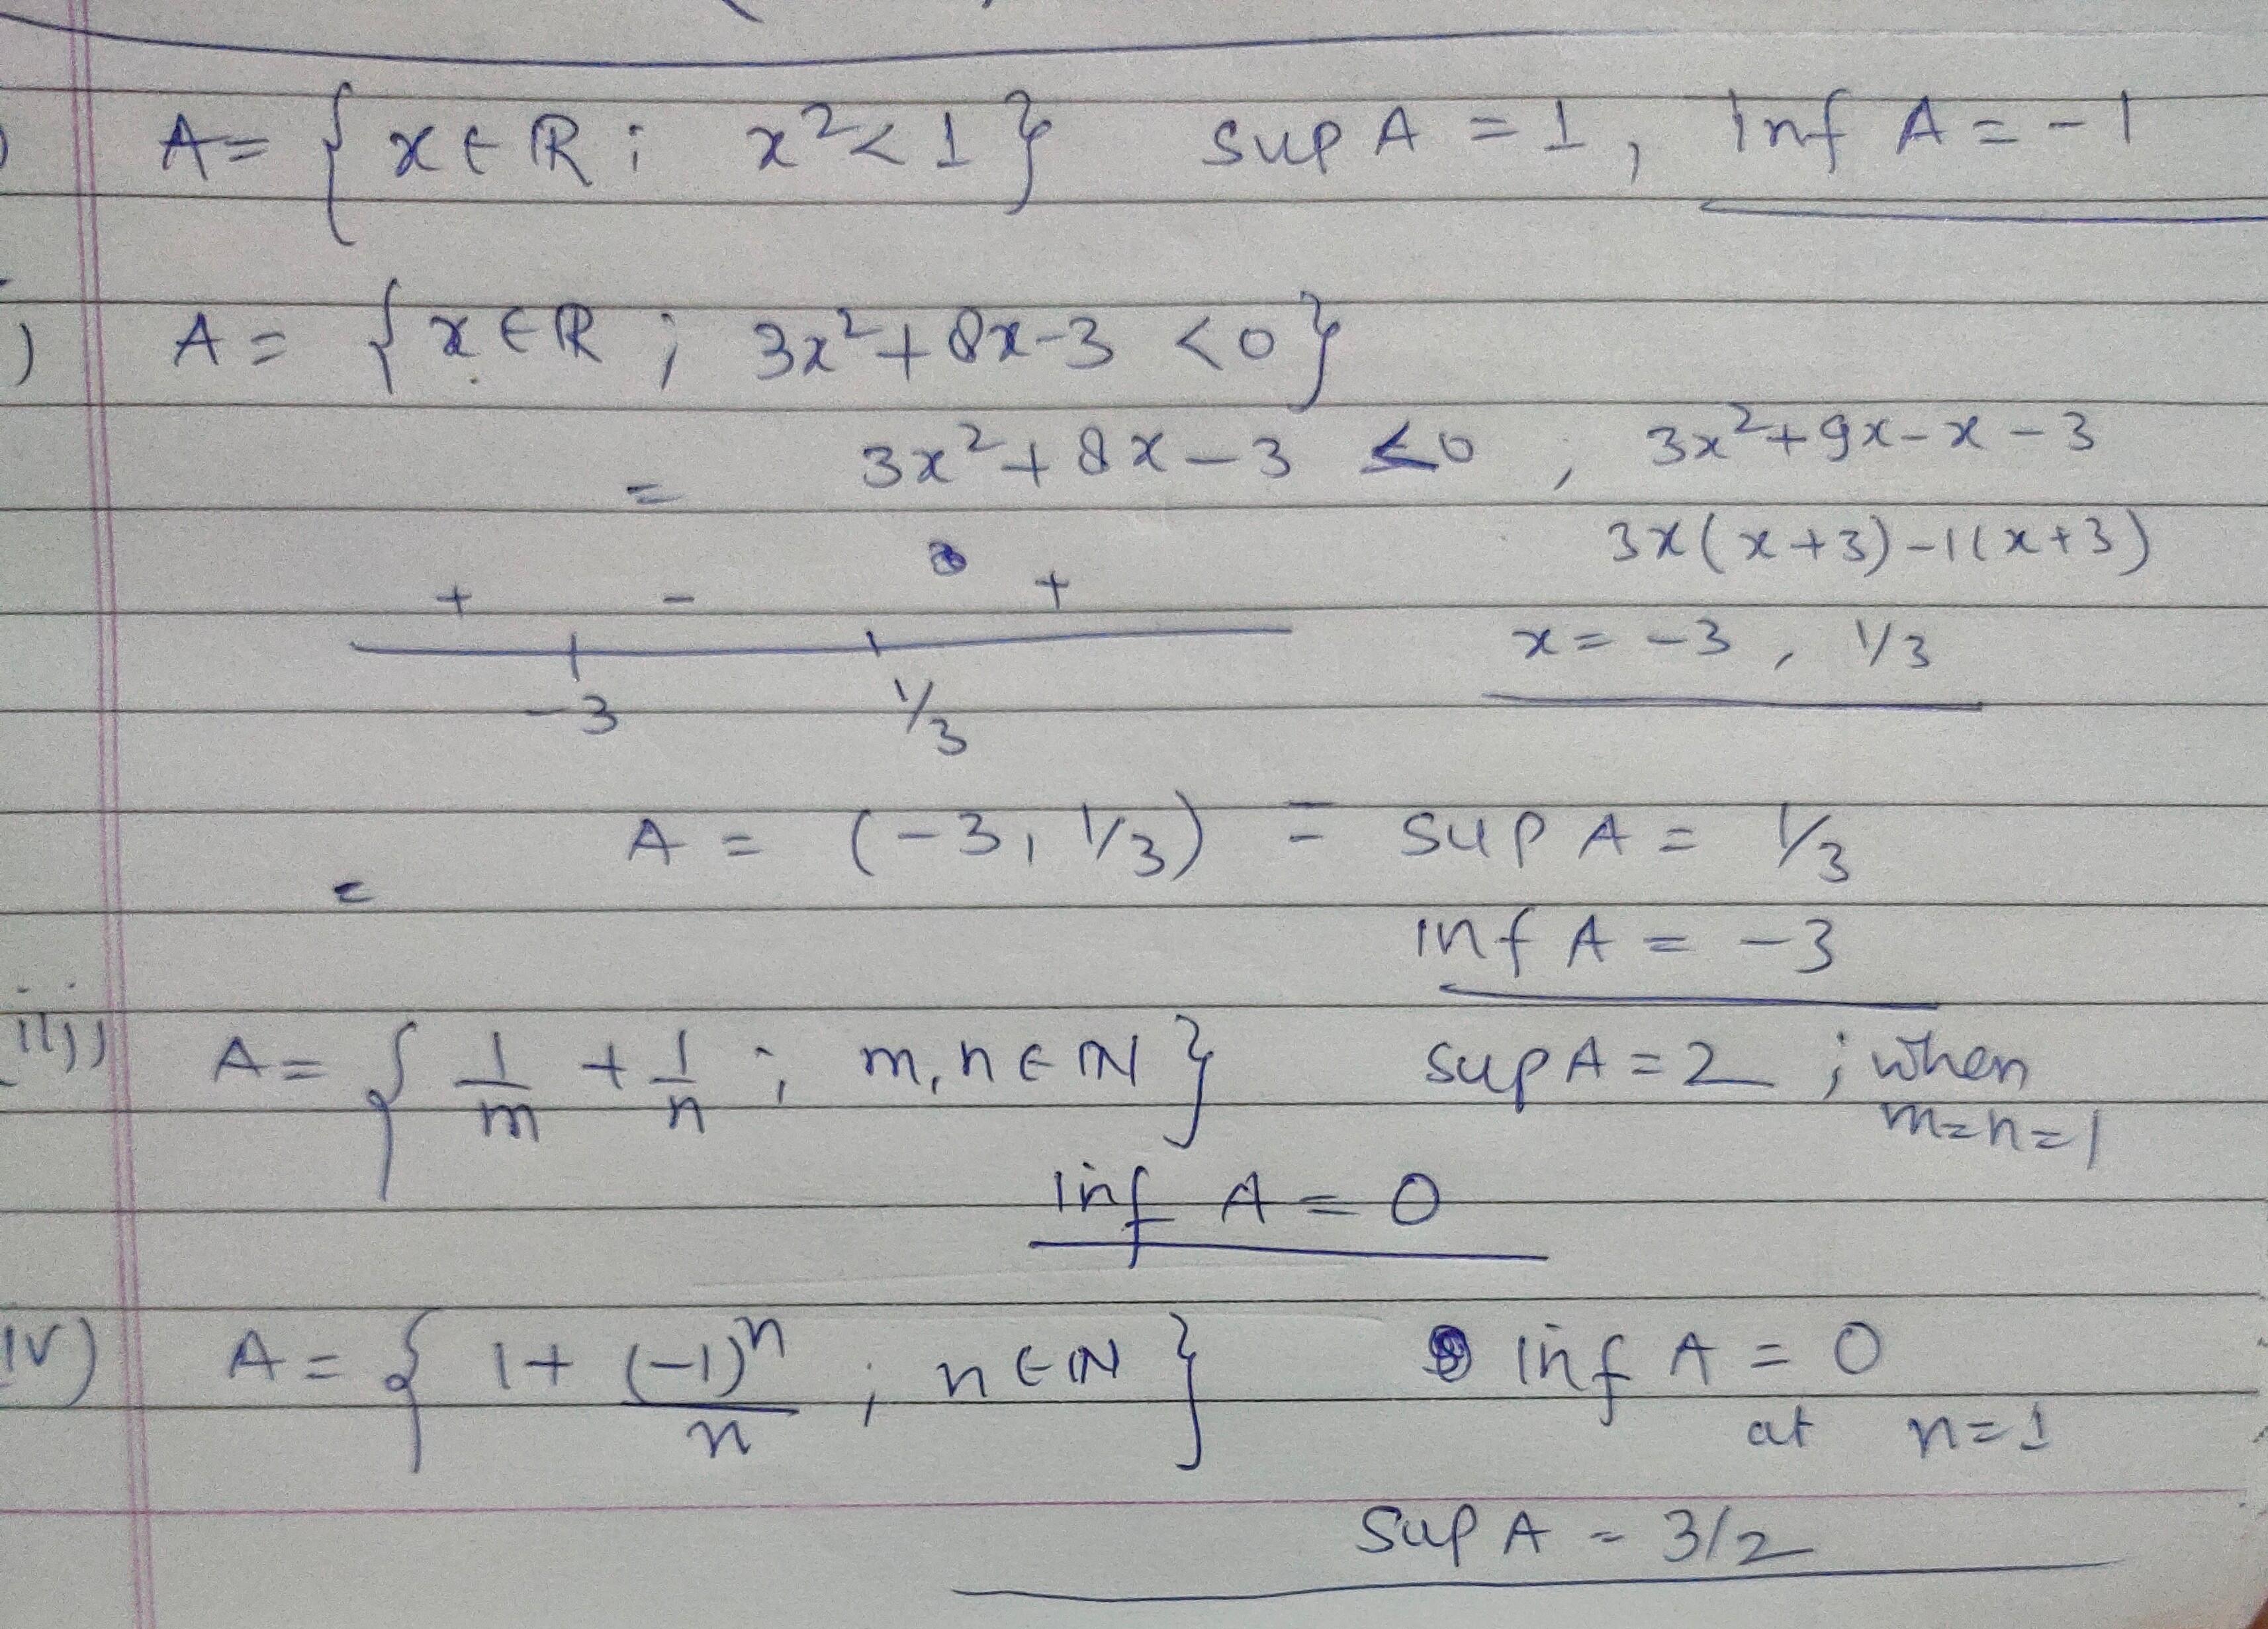 A = { x ∈ ℝ ; x² < 1 } sup A = 1, inf A = -1
) A = { x ∈ ℝ ; 3x² + 8x - 3 < 0 }
= 3x² + 8x - 3 < 0 , 3x² + 9x - x - 3
3x(x+3) -1(x+3)
+ - +
x = -3 , 1/3
-3 1/3
A = (-3, 1/3) = sup A = 1/3
=
inf A = -3
iii) A = { 1/m + 1/n ; m, n ∈ ℕ } sup A = 2 ; when
m=n=1
inf A = 0
iv) A = { 1 + (-1)ⁿ/n ; n ∈ ℕ } inf A = 0
at n=1
sup A = 3/2